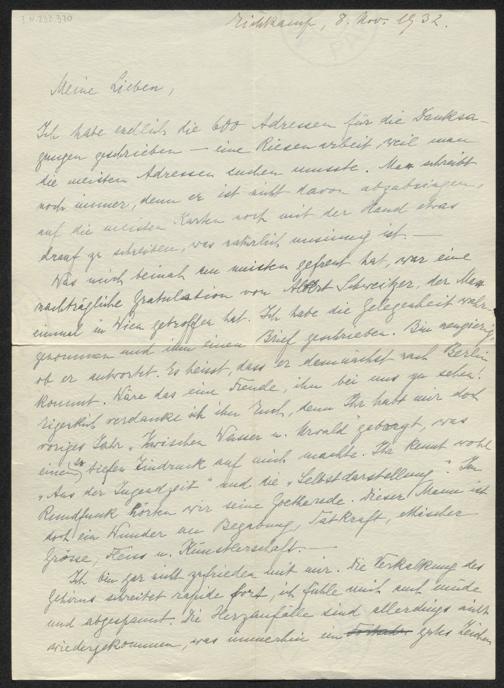 I.N. 232.370
Eichkamp, 8. Nov. 1932.
Meine Lieben,
Ich habe endlich die 600 Adressen für die Danksa-
gungen geschrieben — eine Riesenarbeit, weil man
die meisten Adressen suchen musste. Max schreibt
noch immer, denn er ist nicht davon abzubringen,
auf die meisten Karten noch mit der Hand etwas
drauf zu schreiben, was natürlich unsinnig ist. —
Was mich beinah am meisten gefreut hat, war eine
nachträgliche Gratulation von Albert Schweitzer, der Max
einmal in Wien getroffen hat. Ich habe die Gelegenheit wahr-
genommen und ihm einen Brief geschrieben. Bin neugierig
ob er antwortet. Es heisst, dass er demnächst nach Berlin
kommt. Wäre das eine Freude, ihn bei uns zu sehen!
Eigentlich verdanke ich ihn Euch, denn Ihr habt mir doch
voriges Jahr "Zwischen Wasser u. Urwald" geborgt, was
einen so tiefen Eindruck auf mich machte. Ihr kennt wohl
"Aus der Jugendzeit" und die "Selbstdarstellung". Im
Rundfunk hörten wir seine Goetherede. Dieser Mann ist
doch ein Wunder an Begabung, Tatkraft, ethischer
Grösse, Fleiss u. Künstlerschaft. —
Ich bin gar nicht zufrieden mit mir. Die Verkalkung des
Gehirns schreitet rapide fort, ich fühle mich auch müde
und abgespannt. Die Herzanfälle sind allerdings nicht
wiedergekommen, was immerhin ein gutes Zeichen